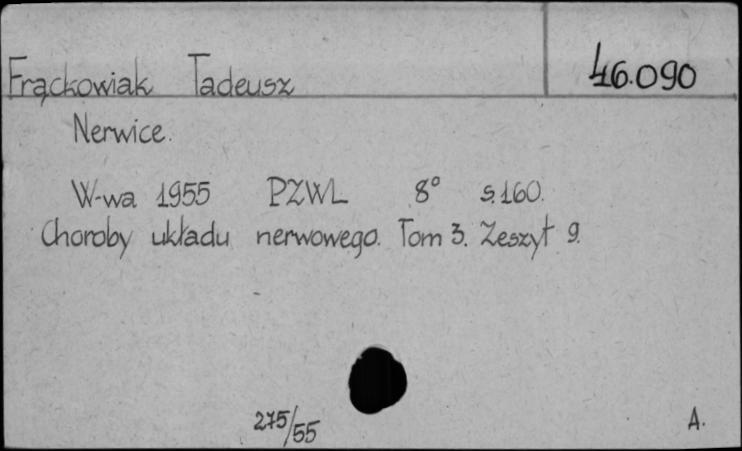 Frąckowiak Tadeusz 46.090
Nerwice.
W-wa 1955 PZWL 8° s.160.
Choroby układu nerwowego. Tom 3. Zeszyt 9.
275/55 A.